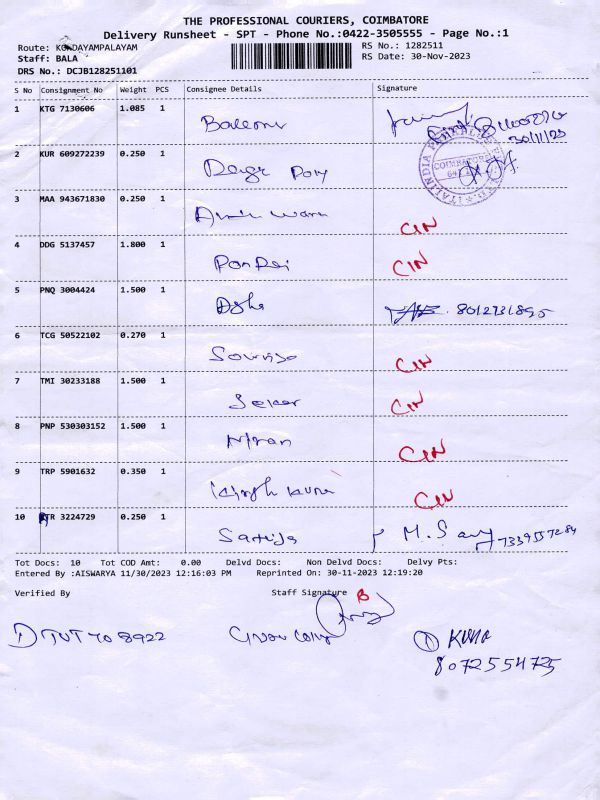 THE PROFESSIONAL COURIERS, COIMBATORE
Delivery Runsheet - SPT - Phone No.:0422-3505555 - Page No.:1
Route: KONDAYAMPALAYAM
RS No.: 1282511
Staff: BALA
RS Date: 30-Nov-2023
DRS No.: DCJB128251101
S No Consignment No Weight PCS Consignee Details Signature
1 KTG 7130606 1.085 1
30/11/23
2 KUR 609272239 0.250 1
COIMBATORE
3 MAA 943671830 0.250 1
CIN
4 DDG 5137457 1.800 1
CIN
5 PNQ 3004424 1.500 1
8012731895
6 TCG 50522102 0.270 1
CIN
7 TMI 30233188 1.500 1 Seker
CIN
8 PNP 530303152 1.500 1
CIN
9 TRP 5901632 0.350 1
CIN
10 TR 3224729 0.250 1
Tot Docs: 10 Tot COD Amt: 0.00 Delvd Docs: Non Delvd Docs: Delvy Pts:
Entered By :AISWARYA 11/30/2023 12:16:03 PM Reprinted On: 30-11-2023 12:19:20
Verified By Staff Signature B
① TUT 708922
① KUNA
8072554725